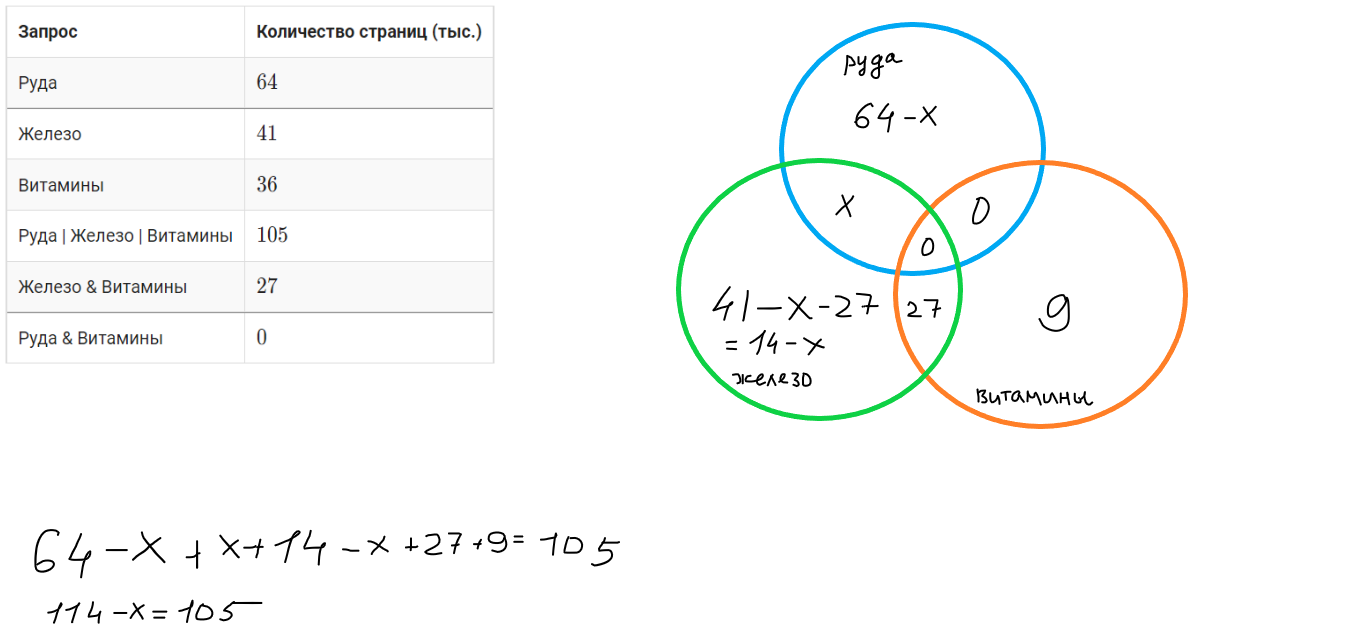 Запрос Количество страниц (тыс.)
Руда 64
Железо 41
Витамины 36
Руда | Железо | Витамины 105
Железо & Витамины 27
Руда & Витамины 0
руда
64-x
x
0
0
41-x-27
= 14-x
железо
27
9
витамины
64-x+x+14-x+27+9=105
114-x=105